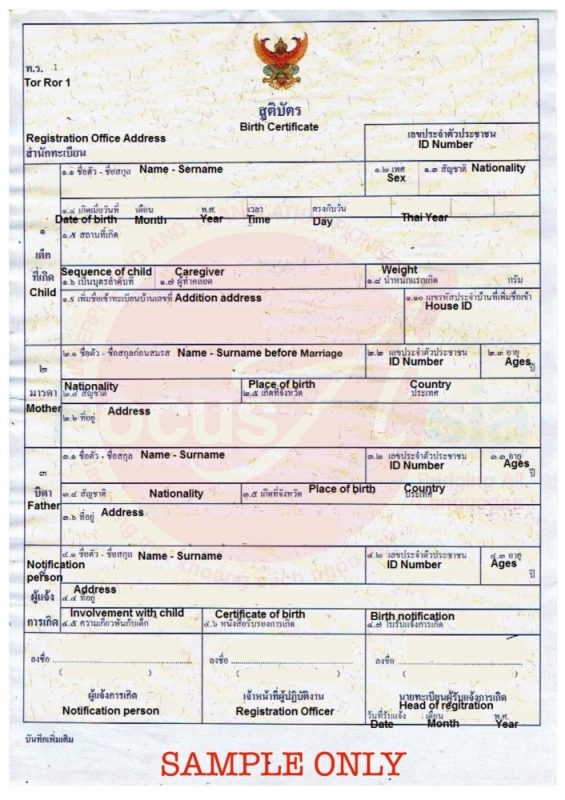 ท.ร. 1
Tor Ror 1
สูติบัตร
Birth Certificate
Registration Office Address
สำนักทะเบียน
เลขประจำตัวประชาชน
ID Number
๑.๑ ชื่อตัว - ชื่อสกุล Name - Sername
๑.๒ เพศ
Sex
๑.๓ สัญชาติ Nationality
๑.๔ เกิดเมื่อวันที่ เดือน พ.ศ. เวลา ตรงกับวัน
Date of birth Month Year Time Day Thai Year
๑.๕ สถานที่เกิด
๑
เด็ก
ที่เกิด
Child
Sequence of child Caregiver Weight
๑.๖ เป็นบุตรลำดับที่ ๑.๗ ผู้ทำคลอด ๑.๘ น้ำหนักแรกเกิด กรัม
๑.๙ เพิ่มชื่อเข้าทะเบียนบ้านเลขที่ Addition address
๑.๑๐ เลขรหัสประจำบ้านที่เพิ่มชื่อเข้า
House ID
๒
มารดา
Mother
๒.๑ ชื่อตัว - ชื่อสกุลก่อนสมรส Name - Surname before Marriage
๒.๒ เลขประจำตัวประชาชน
ID Number
๒.๓ อายุ
Ages
ปี
Nationality Place of birth Country
๒.๔ สัญชาติ ๒.๕ เกิดที่จังหวัด ประเทศ
๒.๖ ที่อยู่ Address
๓
บิดา
Father
๓.๑ ชื่อตัว - ชื่อสกุล Name - Surname
๓.๒ เลขประจำตัวประชาชน
ID Number
๓.๓ อายุ
Ages
ปี
๓.๔ สัญชาติ Nationality ๓.๕ เกิดที่จังหวัด Place of birth Country
ประเทศ
๓.๖ ที่อยู่ Address
Notification
person
ผู้แจ้ง
การเกิด
๔.๑ ชื่อตัว - ชื่อสกุล Name - Surname
๔.๒ เลขประจำตัวประชาชน
ID Number
๔.๓ อายุ
Ages
ปี
Address
๔.๔ ที่อยู่
Involvement with child Certificate of birth Birth notification
๔.๕ ความเกี่ยวพันกับเด็ก ๔.๖ หนังสือรับรองการเกิด ๔.๗ ใบรับแจ้งการเกิด
ลงชื่อ ลงชื่อ ลงชื่อ
( ) ( ) ( )
ผู้แจ้งการเกิด เจ้าหน้าที่ผู้ปฏิบัติงาน นายทะเบียนผู้รับแจ้งการเกิด
Notification person Registration Officer Head of regitration
วันที่รับแจ้ง เดือน พ.ศ.
Date Month Year
บันทึกเพิ่มเติม
SAMPLE ONLY